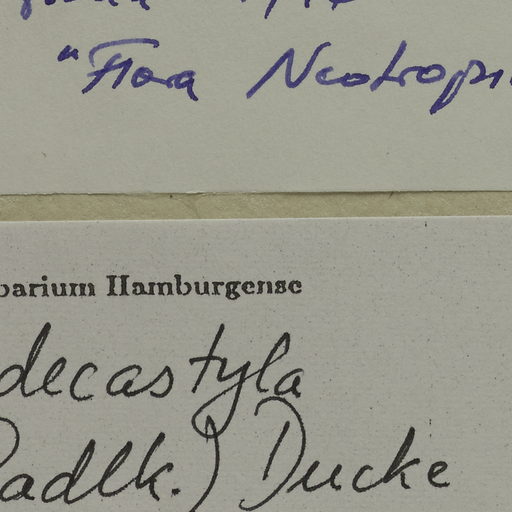 "Flora Neotropi
barium Hamburgense
decastyla
Radlk.) Ducke